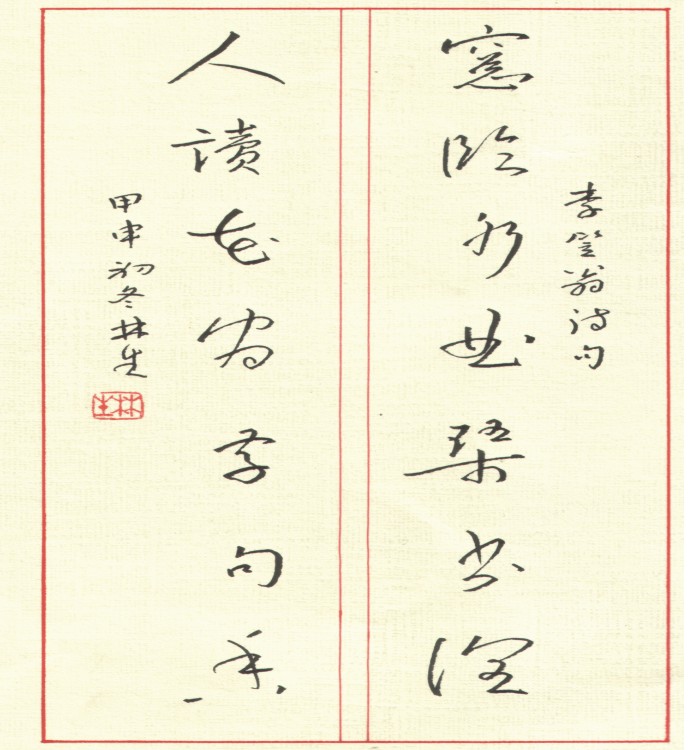 李笠翁诗句
窗临水曲琴书润
人讀花间字句香
甲申初冬林生
林生